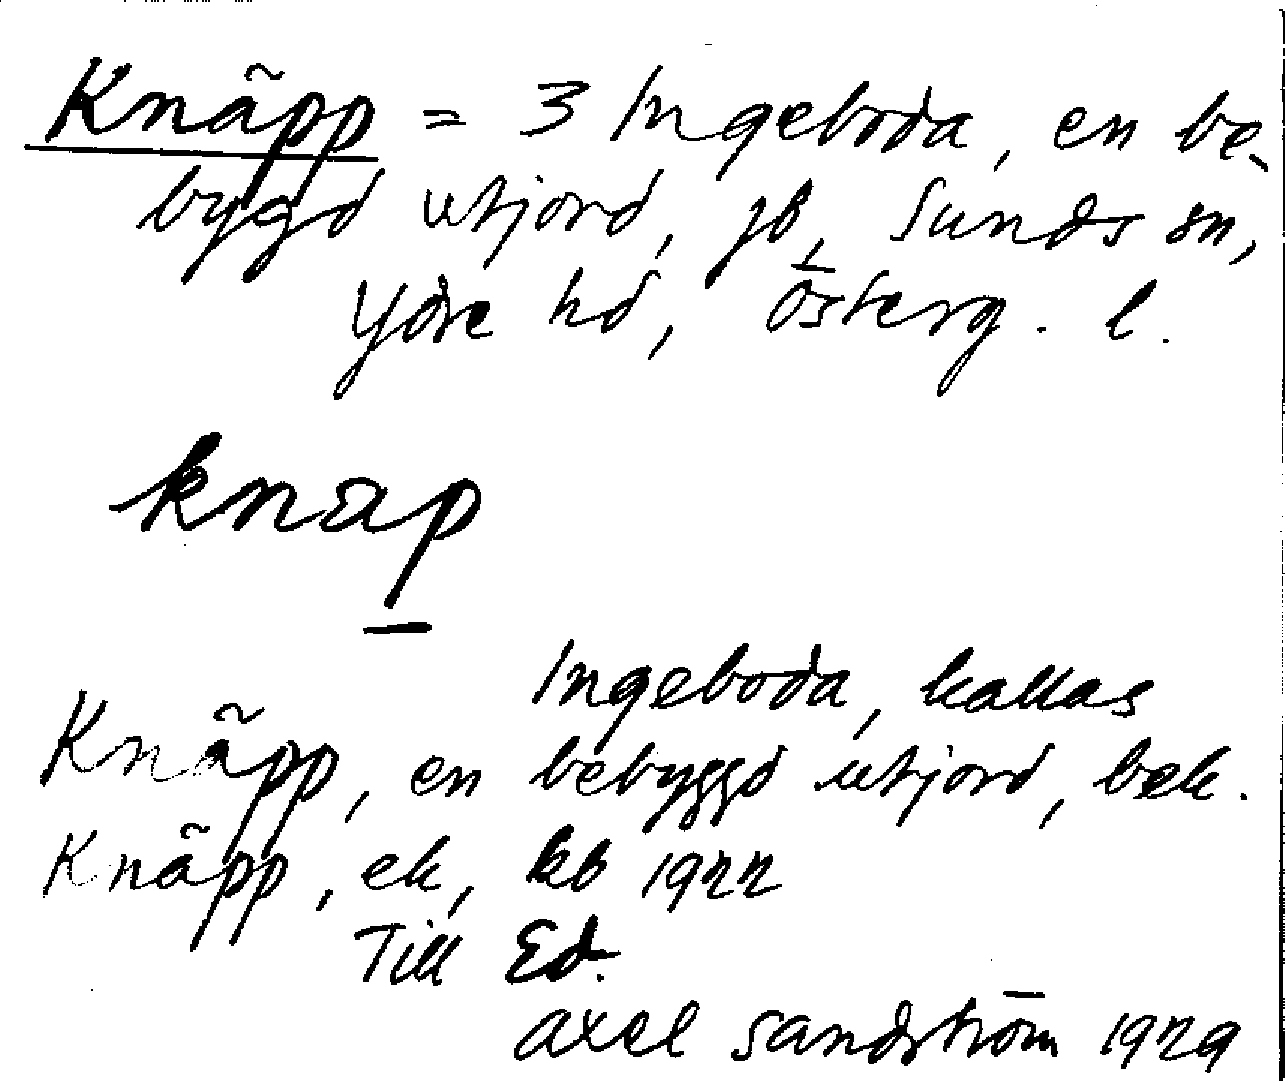 Knäpp = 3 Ingeboda, en be-
bygd utjord, jb, Sunds sn,
Ydre hd, Österg. l.
knap
Ingeboda, kallas
Knäpp, en bebyggd utjord, bek.
Knäpp, ek, kb 1922
Till Ed.
Axel Sandström 1929